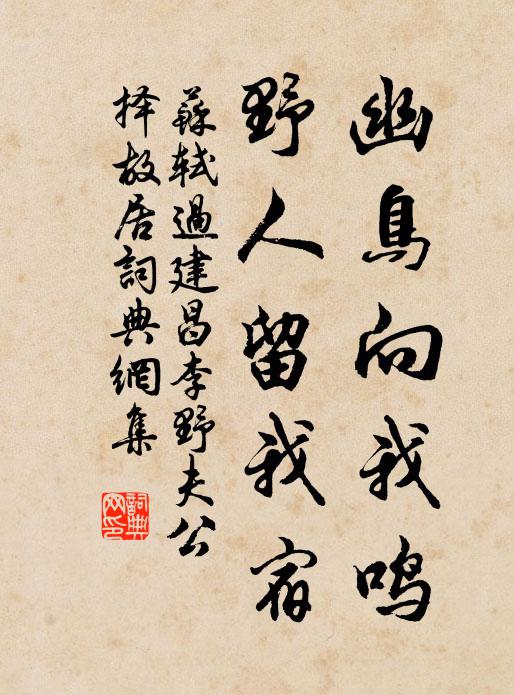 幽鳥向我鸣
野人留我宿
蘇軾過建昌李野夫公
择故居詞典網集
詞典
网印